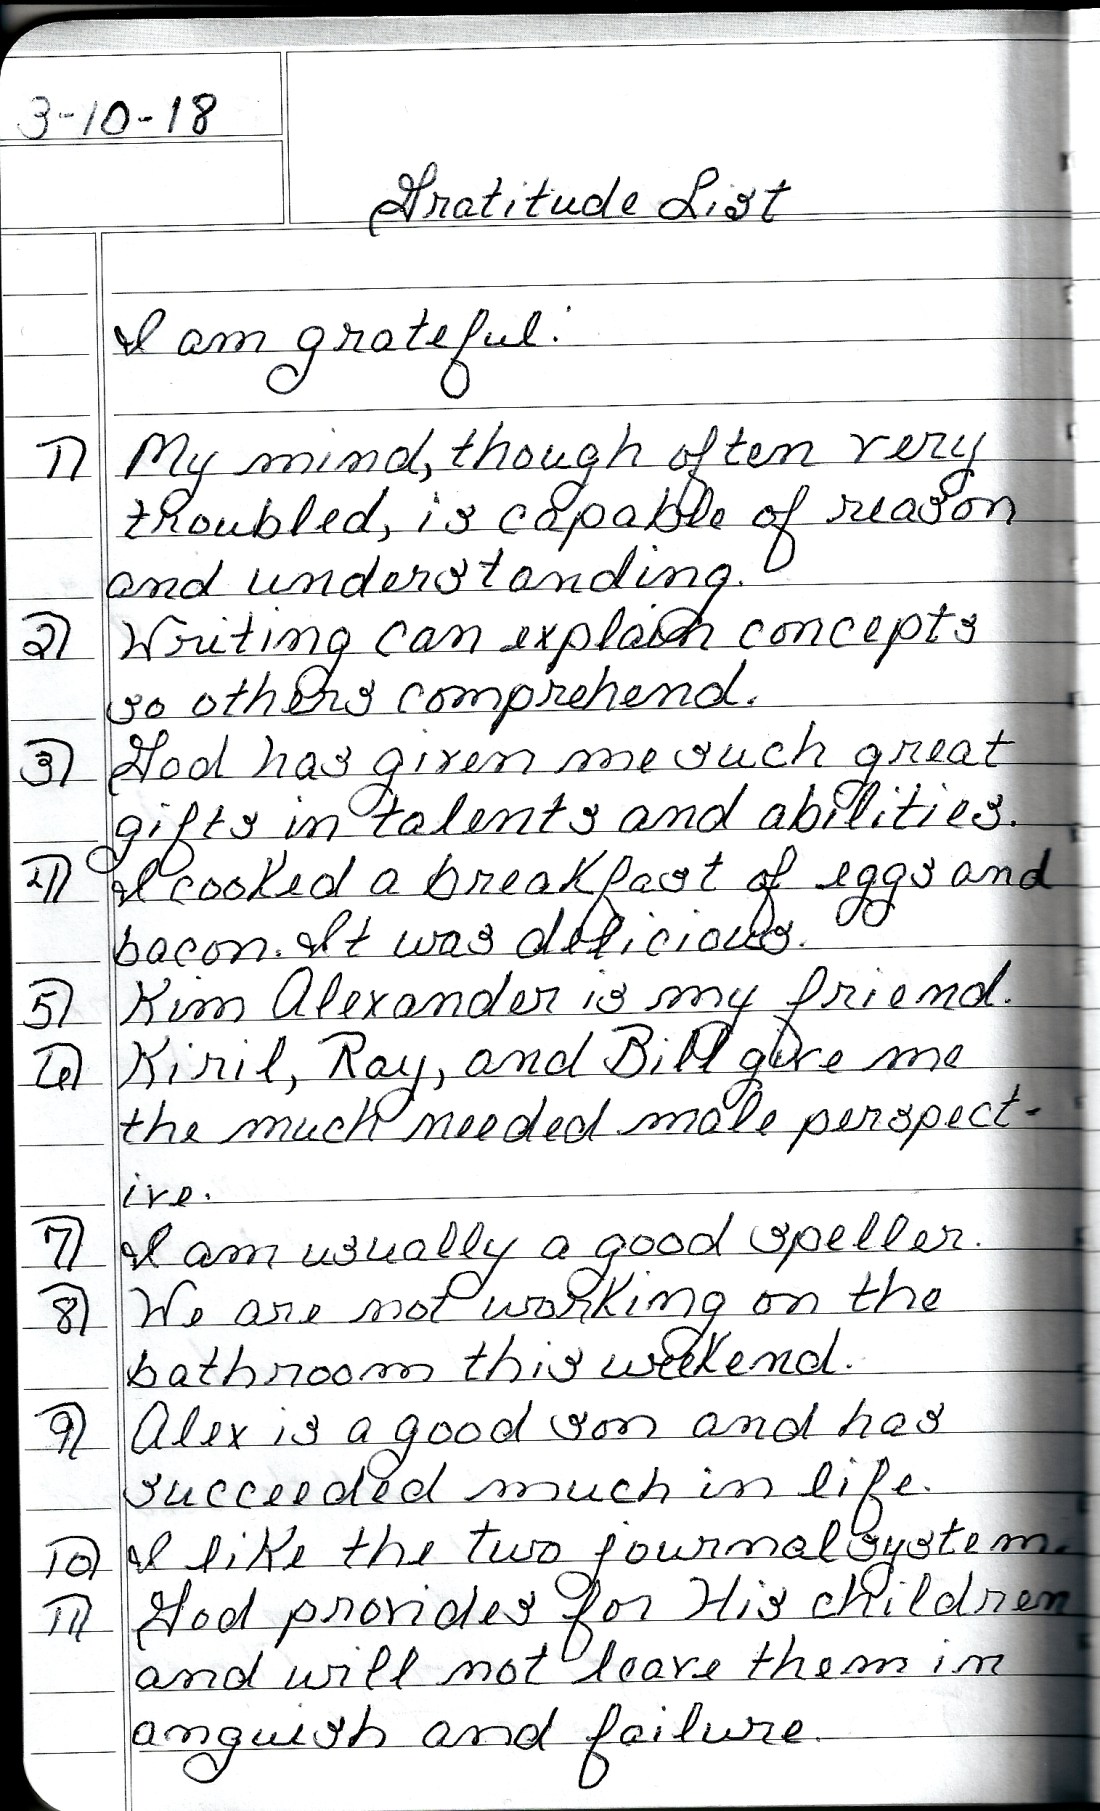 3-10-18
Gratitude List
I am grateful:
1) My mind, though often very
troubled, is capable of reason
and understanding.
2) Writing can explain concepts
so others comprehend.
3) God has given me such great
gifts in talents and abilities.
4) I cooked a breakfast of eggs and
bacon. It was delicious.
5) Kim Alexander is my friend.
6) Kiril, Ray, and Bill give me
the much needed male perspect-
ive.
7) I am usually a good speller.
8) We are not working on the
bathroom this weekend.
9) Alex is a good son and has
succeeded much in life.
10) I like the two journal system.
11) God provides for His children
and will not leave them in
anguish and failure.